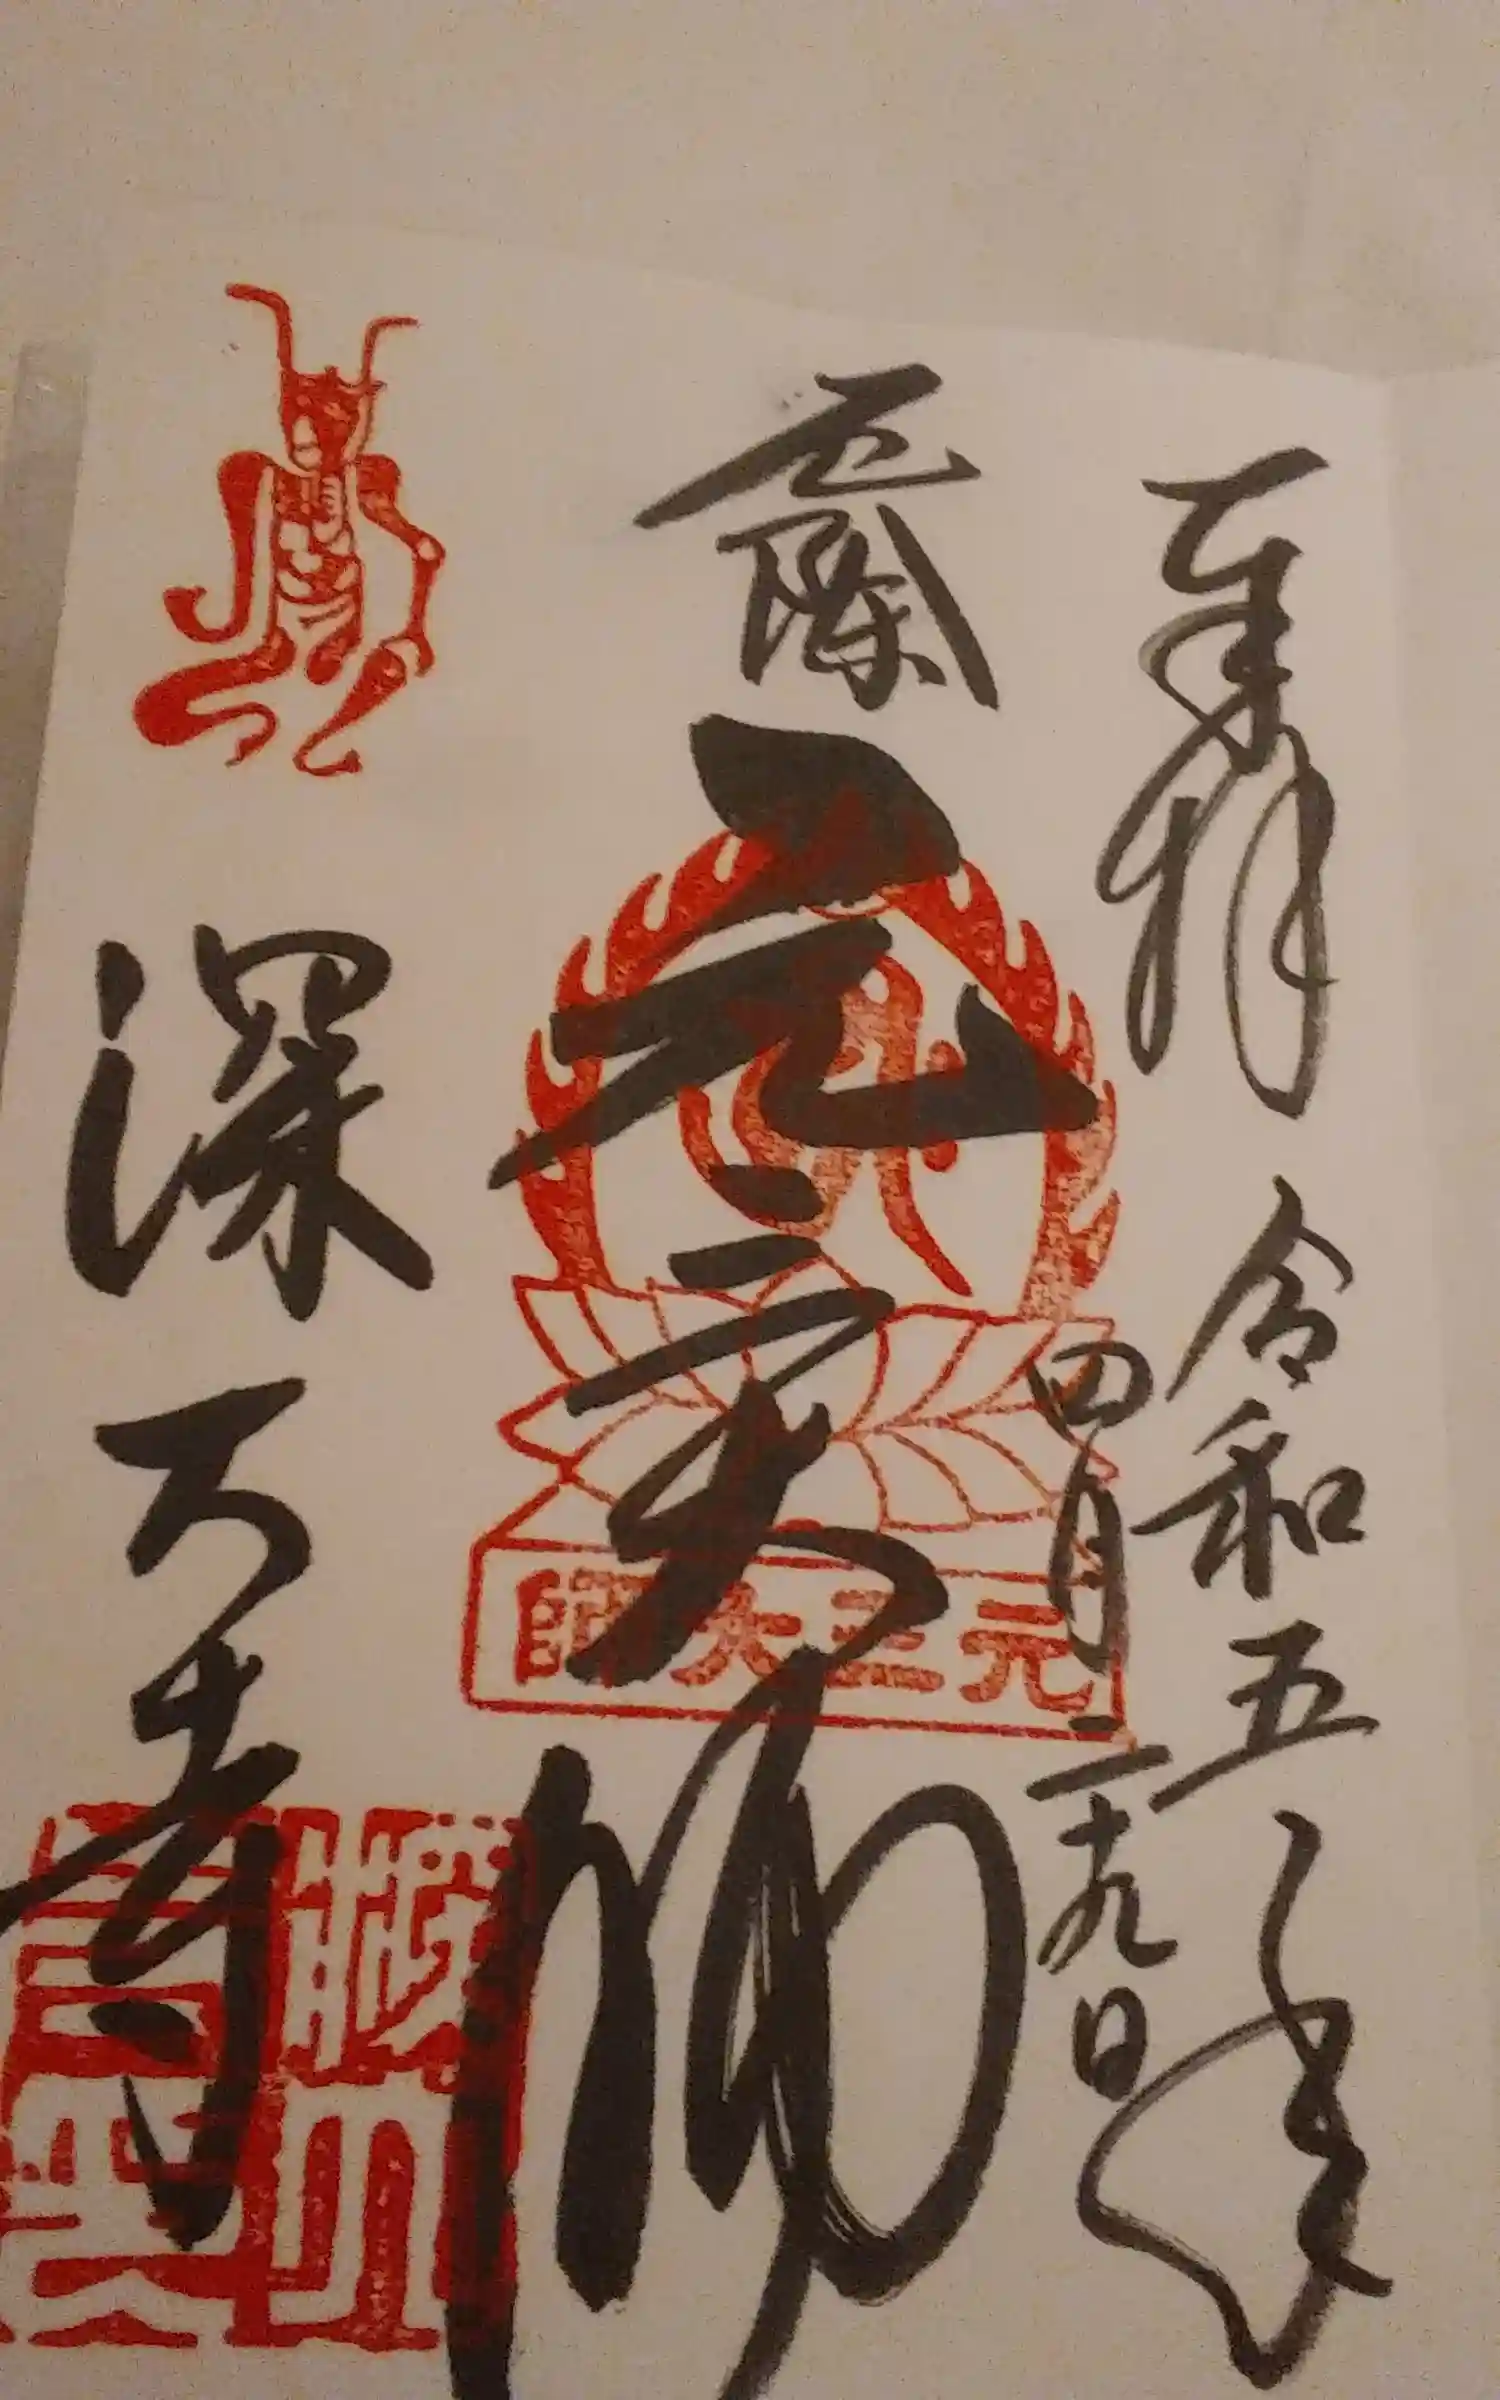 奉拝
令和五年
四月二十九日
厄除
元三大師
元三大師
深大寺